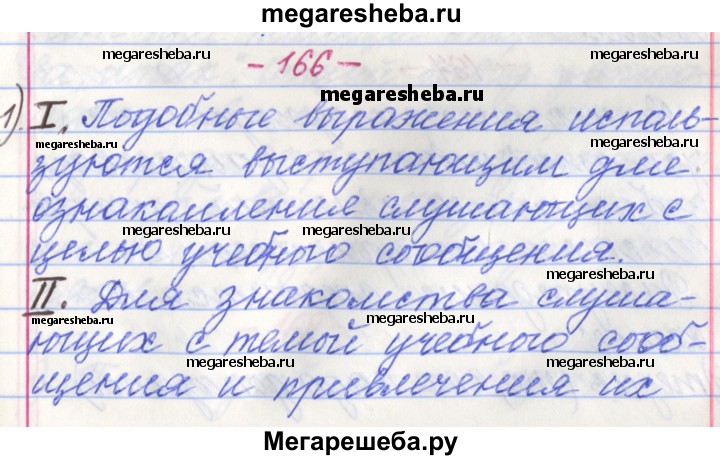 megaresheba.ru
megaresheba.ru megaresheba.ru
- 166 -
megaresheba.ru
1) I. Подобные выражения исполь-
megaresheba.ru megaresheba.ru
зуются выступающим для
ознакомления слушающих с
megaresheba.ru megaresheba.ru
целью учебного сообщения.
megaresheba.ru
II. Для знакомства слуша-
megaresheba.ru
ющих с темой учебного сооб-
megaresheba.ru megaresheba.ru
щения и привлечения их
Мегарешеба.ру